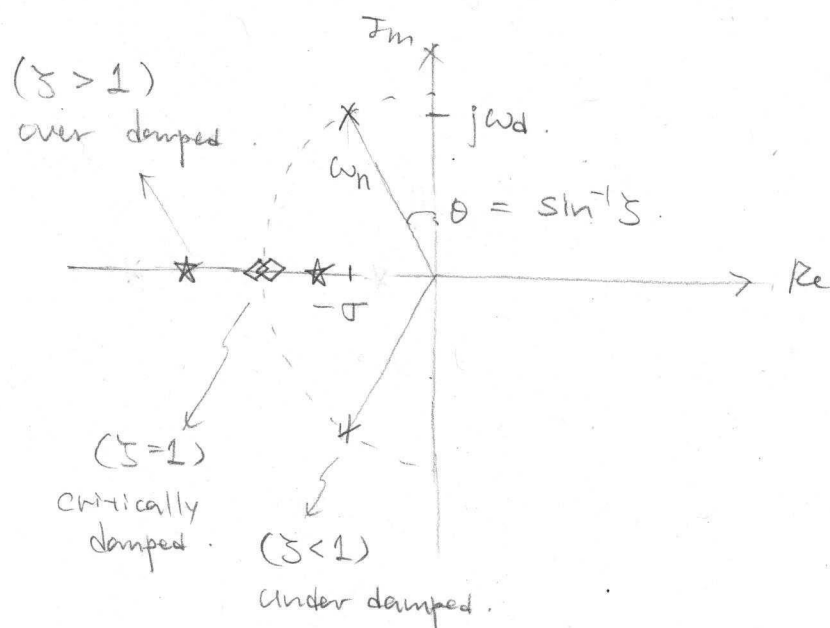 Im
(ζ > 1)
over damped
jωd.
ωn
θ = sin⁻¹ζ.
Re
-σ
(ζ=1)
critically
damped.
(ζ<1)
under damped.